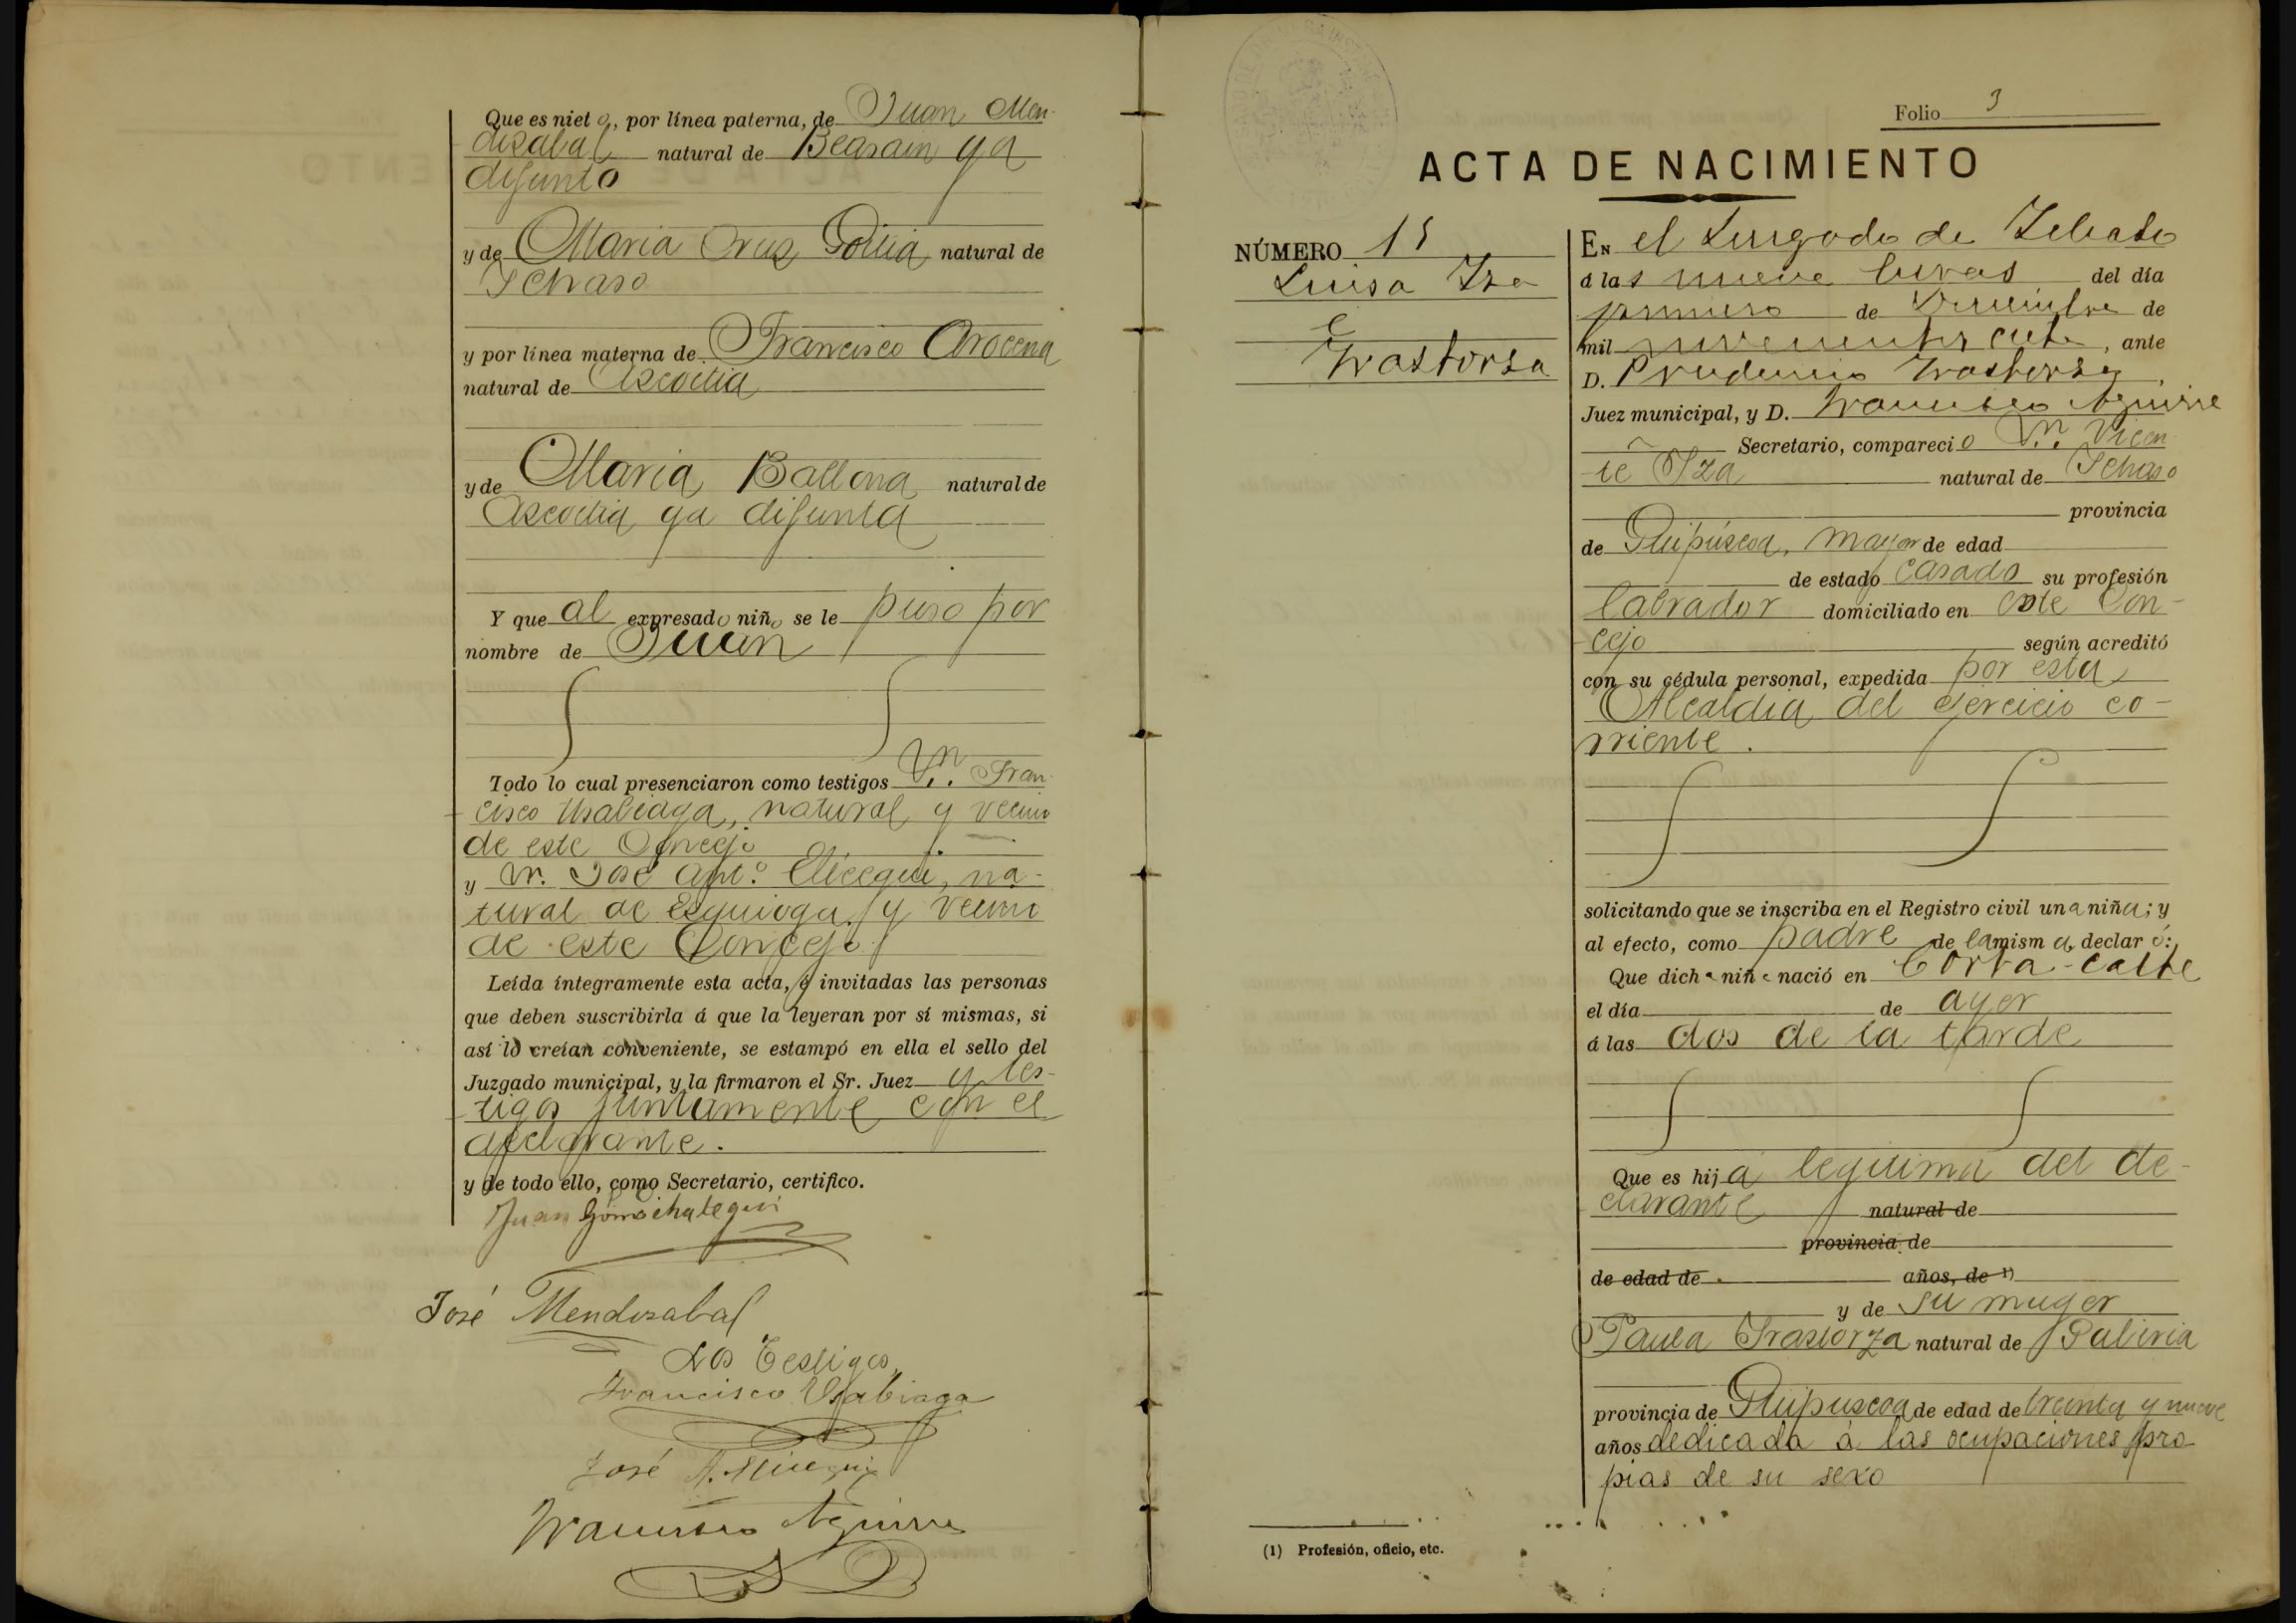 Que es nieto, por línea paterna, de Juan Men-
dizabal natural de Beasain ya
difunto
y de Maria Cruz Goitia natural de
Ichaso
y por línea materna de Francisco Arocena
natural de Azcoitia
y de Maria Ballona natural de
Azcoitia ya difunta
Y que al expresado niño se le puso por
nombre de Juan
Todo lo cual presenciaron como testigos Dn. Fran-
cisco Usabiaga, natural y vecino
de este Concejo
y Dn. José Antº. Elicegui, na-
tural de Ezquioga y vecino
de este Concejo
Leída íntegramente esta acta, é invitadas las personas
que deben suscribirla á que la leyeran por sí mismas, si
así lo creían conveniente, se estampó en ella el sello del
Juzgado municipal, y la firmaron el Sr. Juez y tes-
tigos juntamente con el
declarante.
y de todo ello, como Secretario, certifico.
Juan
José Mendizabal
Los Testigos
Francisco Usabiaga
José A. Elicegui
Francisco Aguirre
Folio 3
ACTA DE NACIMIENTO
NÚMERO 15
Luisa Iza
E
Irastorza
EN el Juzgado de Ichaso
á las nueve horas del día
primero de Diciembre de
mil novecientos , ante
D. Prudencio Irastorza,
Juez municipal, y D. Francisco Aguirre
Secretario, compareció Dn. Vicen-
te Iza natural de Ichaso
provincia
de Guipúzcoa, mayor de edad
de estado casado su profesión
labrador domiciliado en este Con-
cejo según acreditó
con su cédula personal, expedida por esta
Alcaldia del ejercicio co-
rriente.
solicitando que se inscriba en el Registro civil una niña; y
al efecto, como padre de la misma, declaró:
Que dicha niña nació en Borra-calbe
el día de ayer
á las dos de la tarde
Que es hija legitima del de-
clarante natural de
provincia de
de edad de años, de 1)
y de su muger
Paula Irastorza natural de Gabiria
provincia de Guipuzcoa de edad de treinta y nueve
años dedicada á las ocupaciones pro
pias de su sexo
(1) Profesión, oficio, etc.